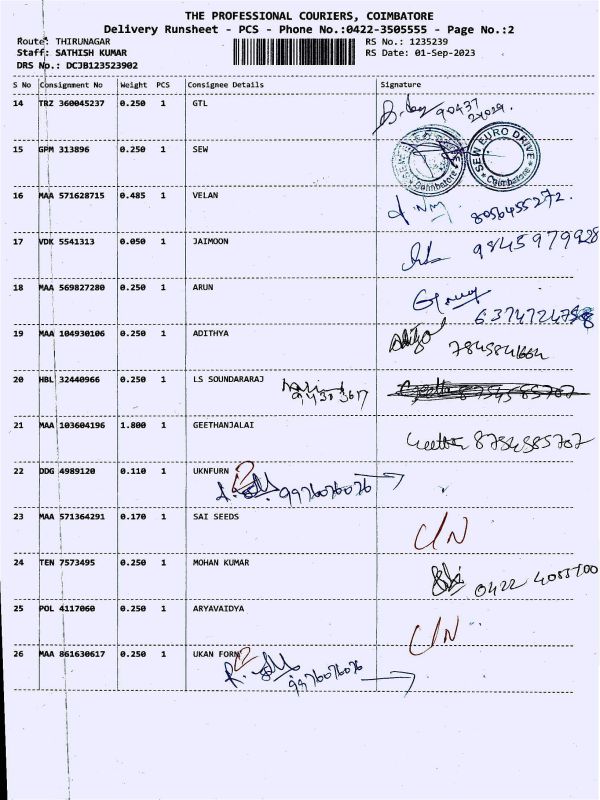 THE PROFESSIONAL COURIERS, COIMBATORE
Delivery Runsheet - PCS - Phone No.:0422-3505555 - Page No.:2
Route: THIRUNAGAR
RS No.: 1235239
Staff: SATHISH KUMAR
RS Date: 01-Sep-2023
DRS No.: DCJB123523902
S No Consignment No Weight PCS Consignee Details Signature
14 TRZ 360045237 0.250 1 GTL
15 GPM 313896 0.250 1 SEW
SEW EURO DRIVE
Coimbatore
SEW EURO DRIVE
Coimbatore
16 MAA 571628715 0.485 1 VELAN
8056455272.
17 VDK 5541313 0.050 1 JAIMOON
9845979928
18 MAA 569827280 0.250 1 ARUN
19 MAA 104930106 0.250 1 ADITHYA
7845841664
20 HBL 32440966 0.250 1 LS SOUNDARARAJ
21 MAA 103604196 1.800 1 GEETHANJALAI
Geetha 8754585707
22 DDG 4989120 0.110 1 UKNFURN
2
9976076076
23 MAA 571364291 0.170 1 SAI SEEDS
UN
24 TEN 7573495 0.250 1 MOHAN KUMAR
25 POL 4117060 0.250 1 ARYAVAIDYA
UN
26 MAA 861630617 0.250 1 UKAN FORN
2
9976076076